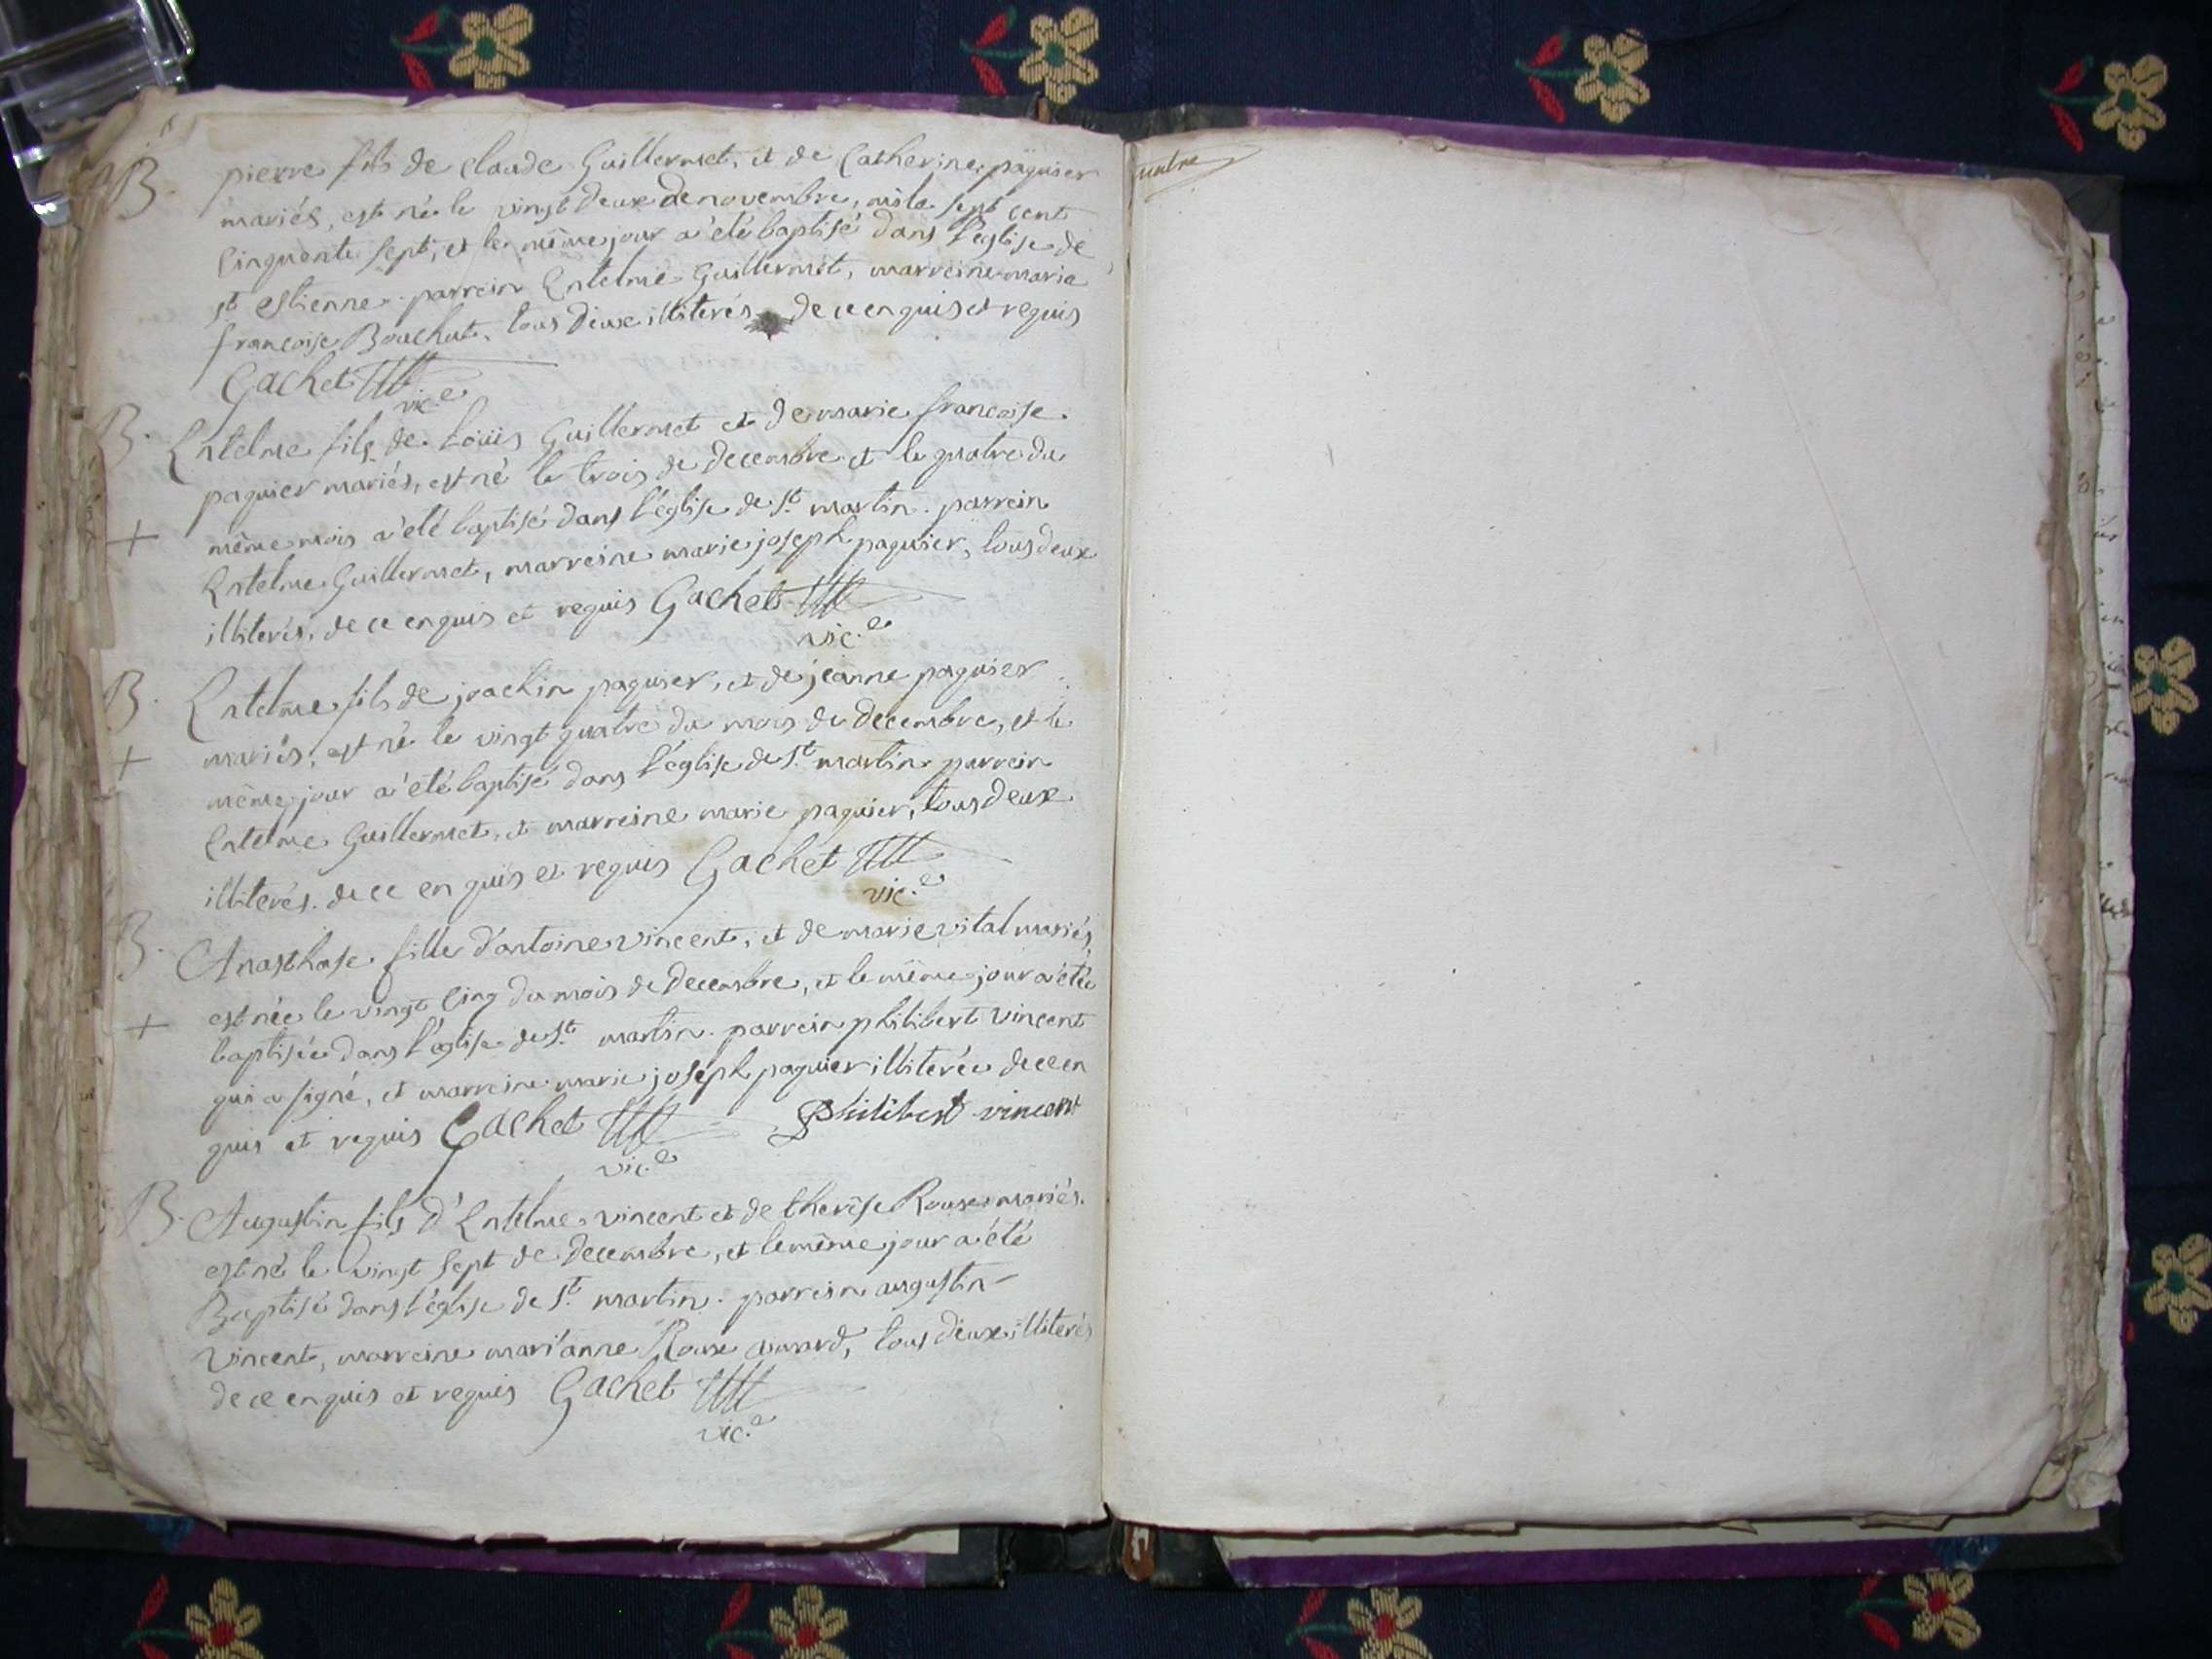 B. pierre fils de claude Guillermet, et de Catherine paquier
mariés, est né le vingt deux de novembre, mile sept cent
Cinquente sept, et le même jour a été baptisé dans l'eglise de
st estienne. parrein Entelme Guillermet, marreine marie
francoise Bouchut, tous deux illiterés de ce enquis et requis
Gachet vic.e
B. Entelme fils de Loüis Guillermet et de marie francoise
paquier mariés, est né le trois de decembre et le quatre du
+ même mois a été baptisé dans l'église de St. martin. parrein
Entelme Guillermet, marreine marie joseph paquier, tous deux
illiterés, de ce enquis et requis Gachet
vic.e
B. Entelme fils de joachin paquier, et de jeanne paquier
+ mariés, est né le vingt quatre du mois de decembre, et le
même jour a été baptisé dans l'église de St. martin parrein
Entelme Guillermet, et marreine marie paquier, tous deux
illiterés. de ce enquis et requis Gachet
vic.e
B. Anasthase fille d'antoine vincent, et de marie vital mariés,
est née le vingt Cinq du mois de decembre, et le même jour a été
+ baptisée dans l'église de St. martin. parrein philibert vincent
qui a signé, et marreine marie joseph paquier illiterée de ce en
quis et requis Gachet Philibert vincent
vic.e
B. Augustin fils d'Entelme vincent et de therèse Roux mariés.
est né le vingt sept de decembre, et le même jour a été
Baptisé dans l'église de St. martin. parrein augustin
vincent, marreine mari'anne Roux, tous deux illiterés
de ce enquis et requis Gachet
vic.e